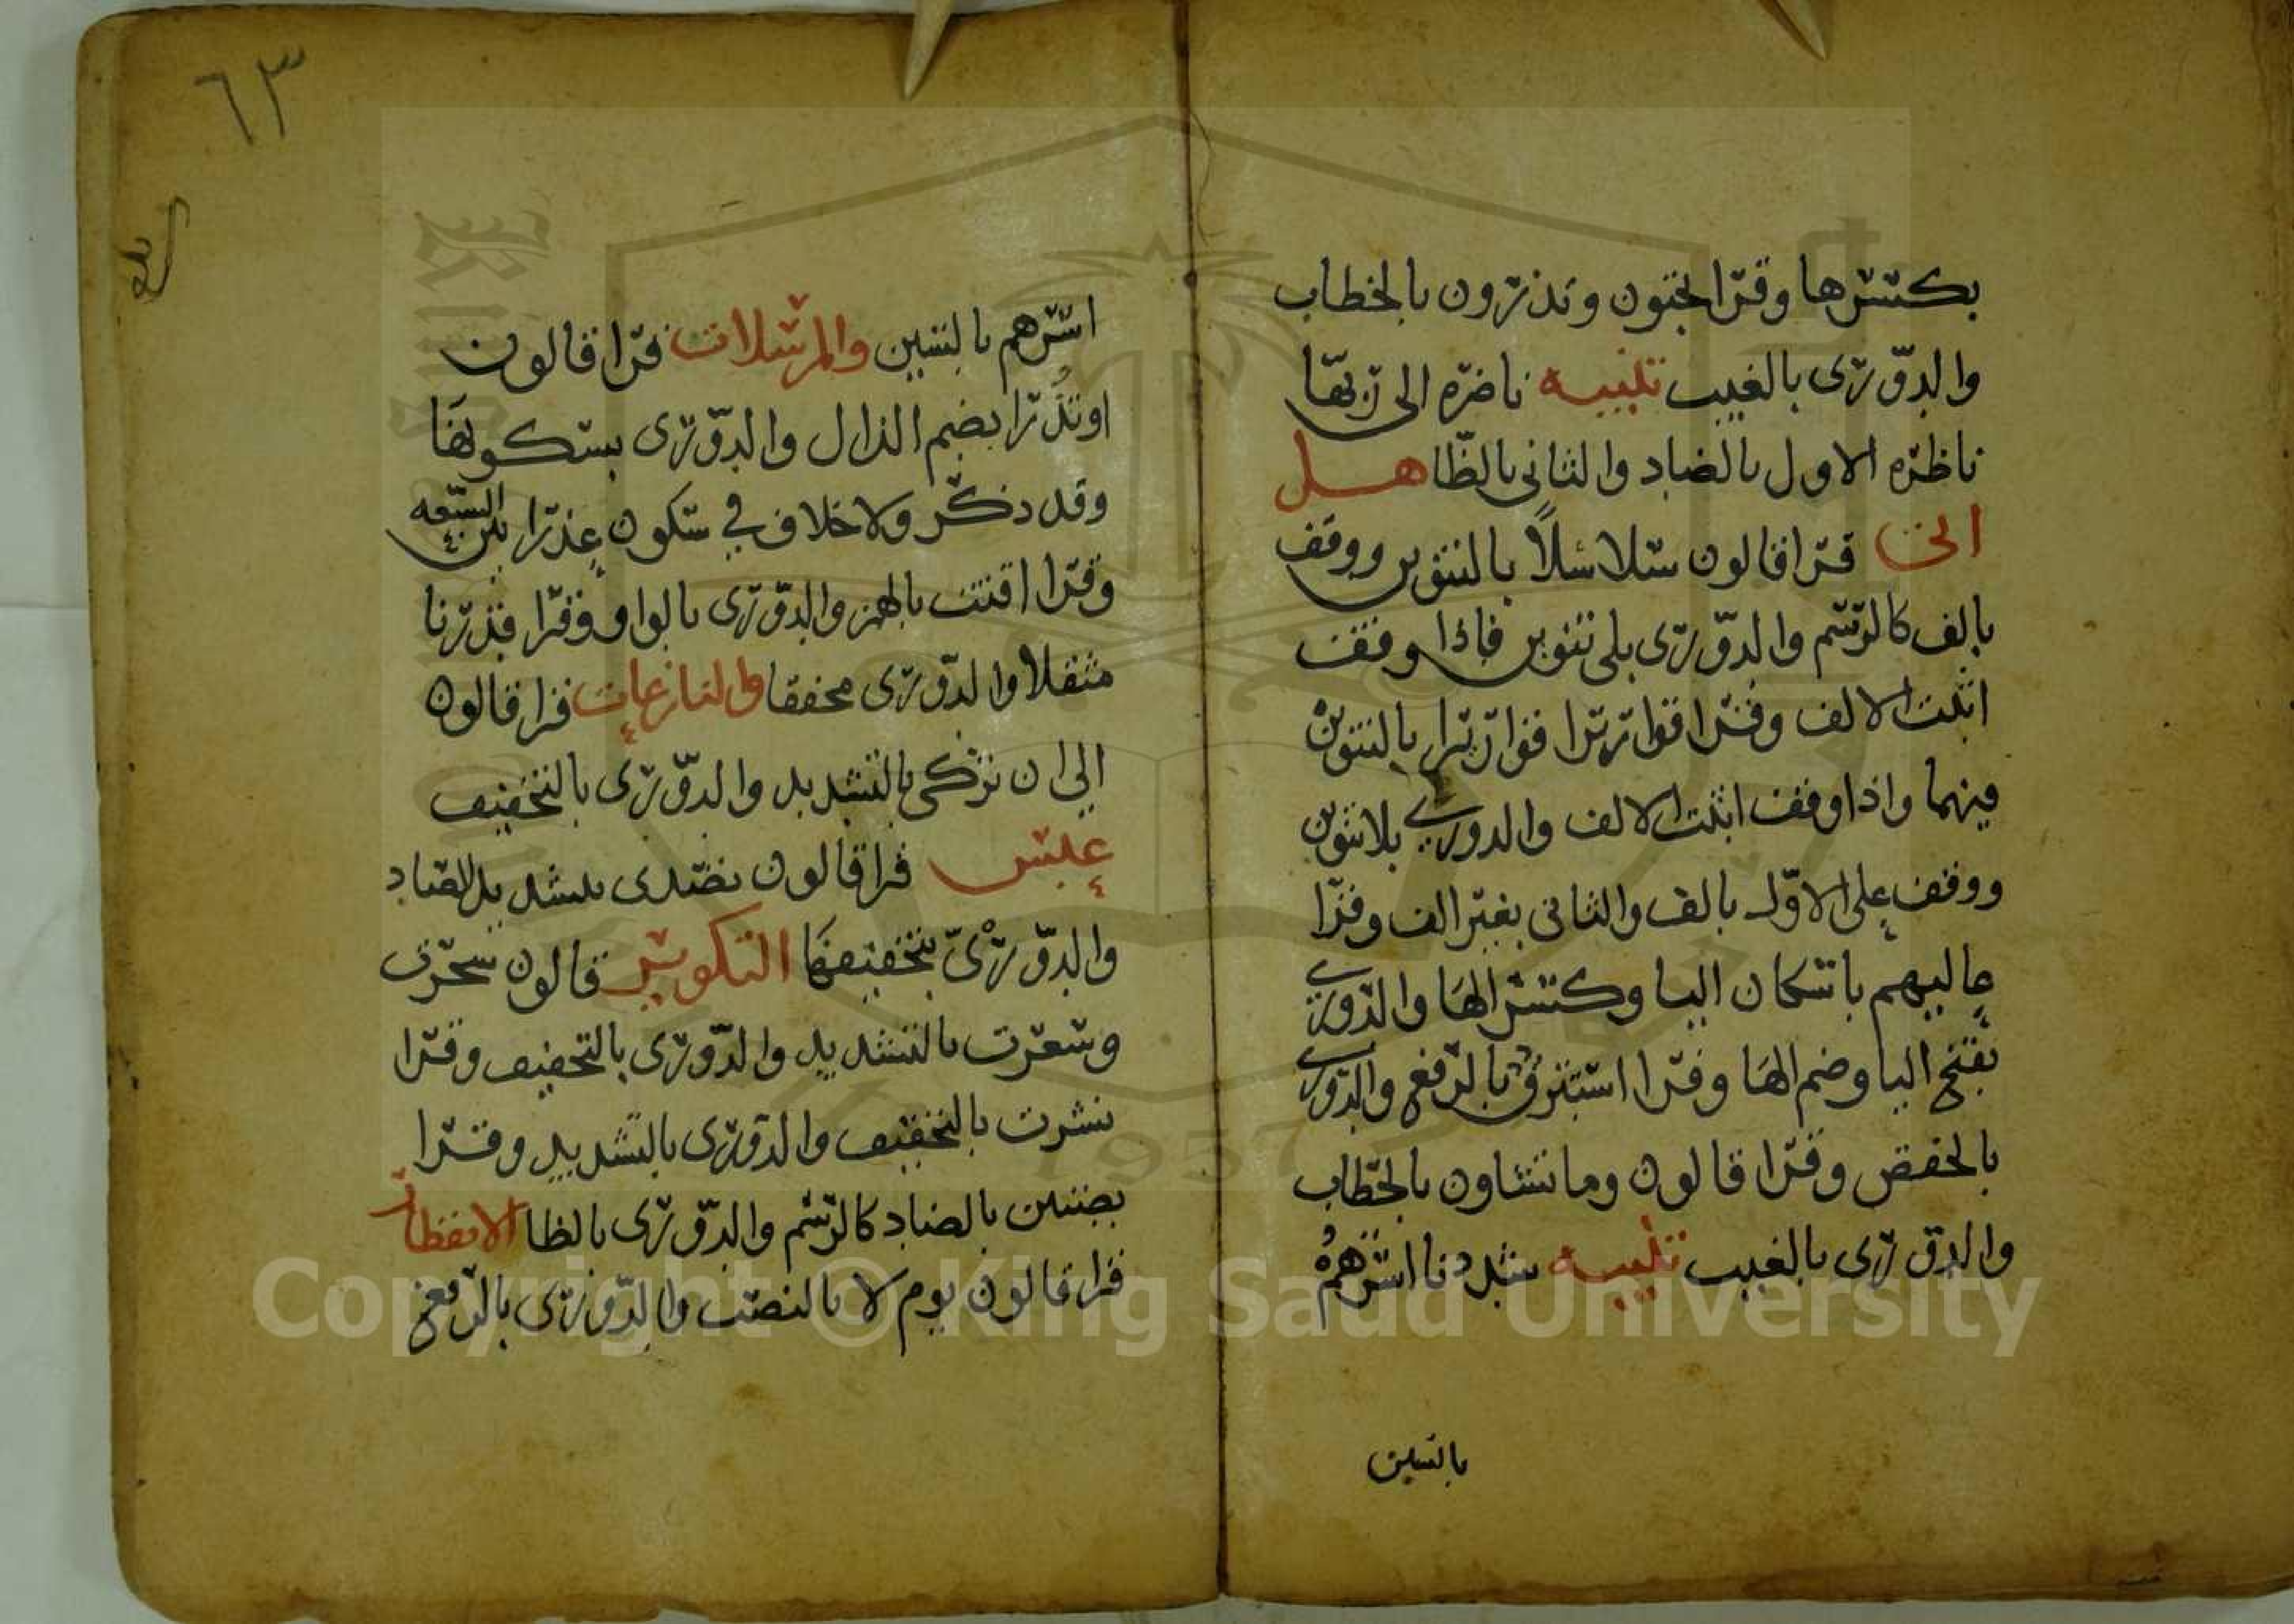 بكسرها وقرا تحبون وتذرون بالخطاب
والدوري بالغيب تنبيه ناضره الى ربها
ناظره الاول بالضاد والثاني بالظا هل
اتى قرا قالون سلاسلاً بالتنوين ووقف
بالف كالرسم والدوري بلى تنوين فاذا وقف
اثبت الالف وقرا قواريرا قواريرا بالتنوين
فيهما واذا وقف اثبت الالف والدوري بلا تنوين
ووقف على الاول بالف والثاني بغير الف وقرا
عاليهم باسكان اليا وكسر الها والدوري
بفتح اليا وضم الها وقرا استبرق بالرفع والدوري
بالخفض وقرا قالون وما تشاون بالخطاب
والدوري بالغيب تنبيه شددنا اسرهم
بالسين
٦٣
اسرهم بالسين والمرسلات قرا قالون
او نذرا بضم الذال والدوري بسكونها
وقد ذكر ولا خلاف في سكون عذرا بين السبعه
وقرا اقتت بالهمز والدوري بالواو وقرا فقدرنا
مثقلا والدوري مخففا والنازعات قرا قالون
الى ان تزكى بالتشديد والدوري بالتخفيف
عبس قرا قالون تصدى بتشديد الصاد
والدوري بتخفيفها التكوير قالون سجرت
وسعرت بالتشديد والدوري بالتخفيف وقرا
نشرت بالتخفيف والدوري بالتشديد وقرا
بضنين بالضاد كالرسم والدوري بالظا الانفطار
قرا قالون يوم لا بالنصب والدوري بالرفع
Copyright © King Saud University
1957